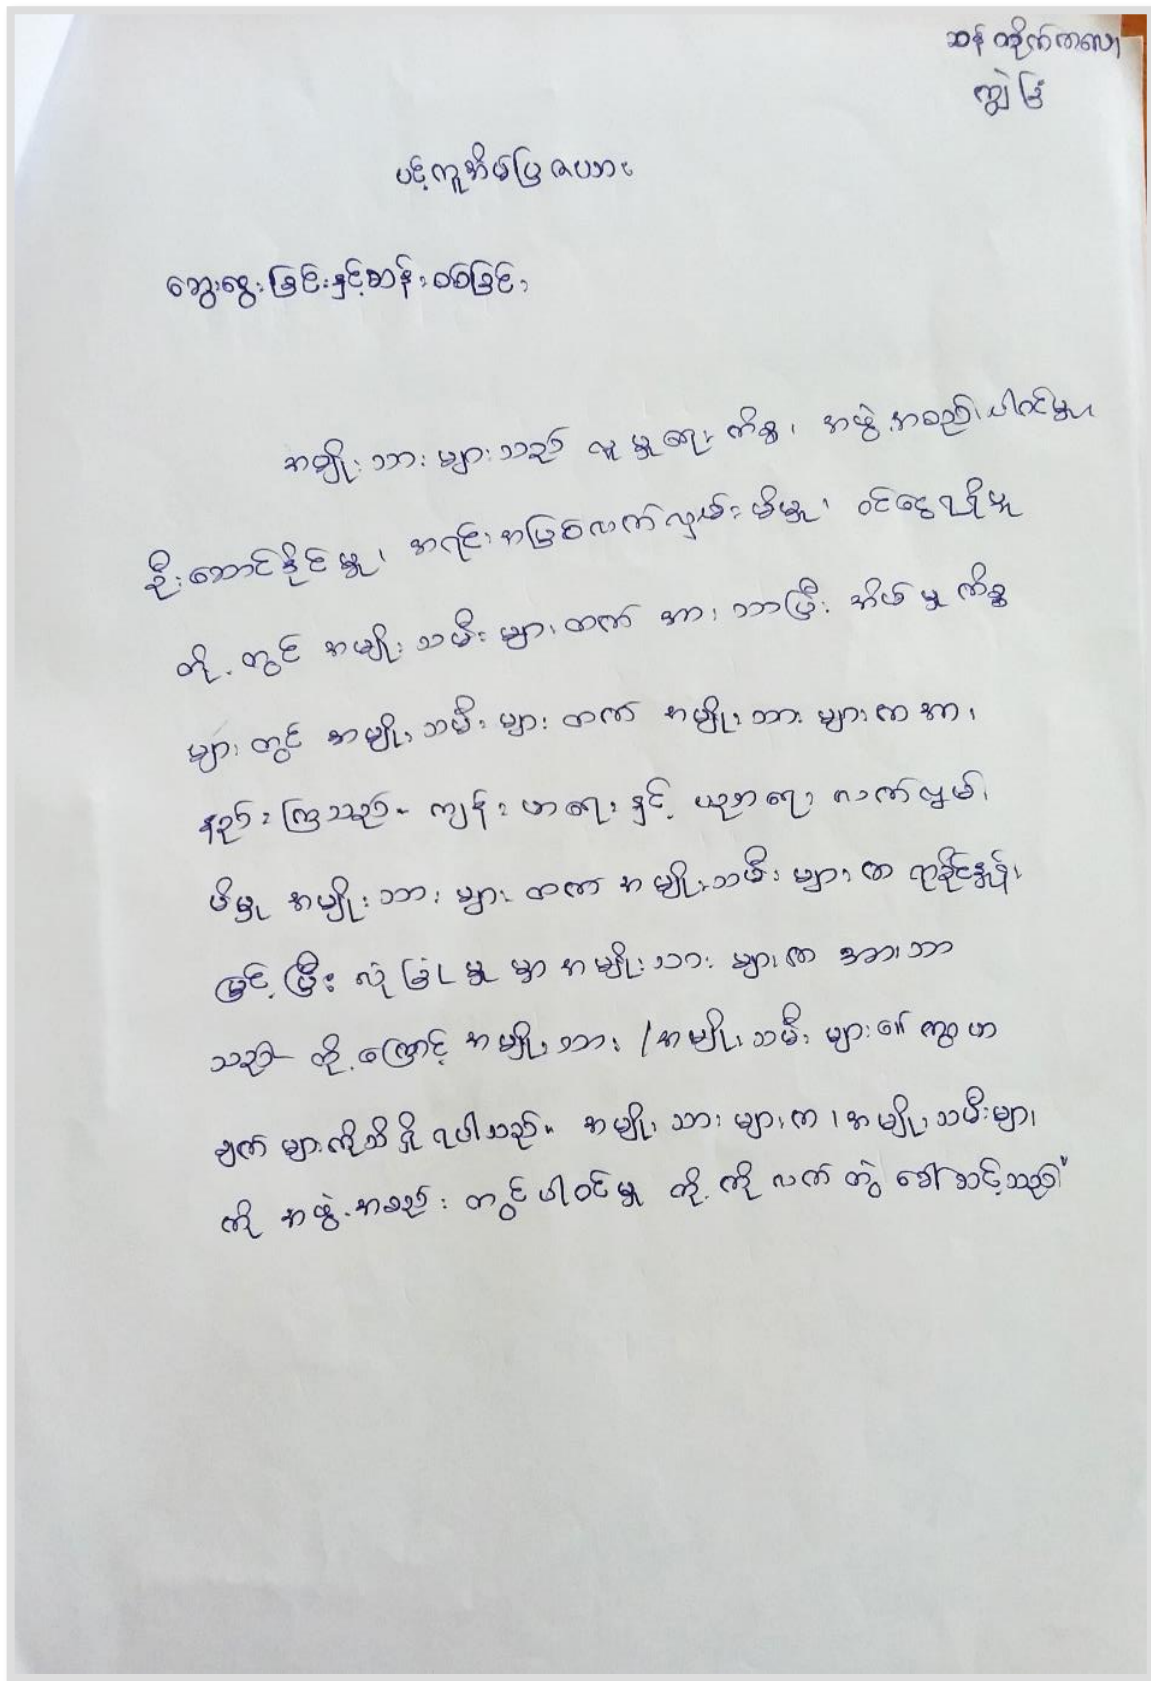 ဆန်တိုက်ကလေး
ကျွဲခြံ
ပင့်ကူအိမ်ပြဇယား
ဆွေးနွေးခြင်းနှင့်ဆန်းစစ်ခြင်း
အမျိုးသားများသည် လူမှုရေးကိစ္စ၊ အဖွဲ့အစည်းပါဝင်မှု၊
ဦးဆောင်နိုင်မှု၊ အရင်းအမြစ်လက်လှမ်းမီမှု၊ ဝင်ငွေရရှိမှု
တို့တွင် အမျိုးသမီးများထက် အားသာပြီး အိမ်မှုကိစ္စ
များတွင် အမျိုးသမီးများထက် အမျိုးသားများက အား
နည်းကြသည်။ ကျန်းမာရေးနှင့် ပညာရေး လက်လှမ်း
မီမှု အမျိုးသားများထက် အမျိုးသမီးများက ရာခိုင်နှုန်း
မြင့်ပြီး လုံခြုံမှုမှာ အမျိုးသားများက အားသာ
သည်။ တို့ကြောင့် အမျိုးသား/အမျိုးသမီးများ၏ ကွာဟ
ချက်များကိုသိရှိရပါသည်။ အမျိုးသားများက အမျိုးသမီးများ
ကို အဖွဲ့အစည်းတွင်ပါဝင်မှု တို့ကို လက်တွဲခေါ်သင့်သည်။